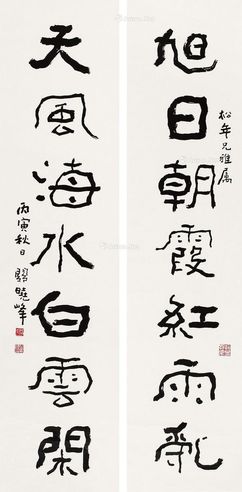 旭日朝霞紅雨亂
松年兄雅属
天風海水白雲閑
丙寅秋日關曉峰